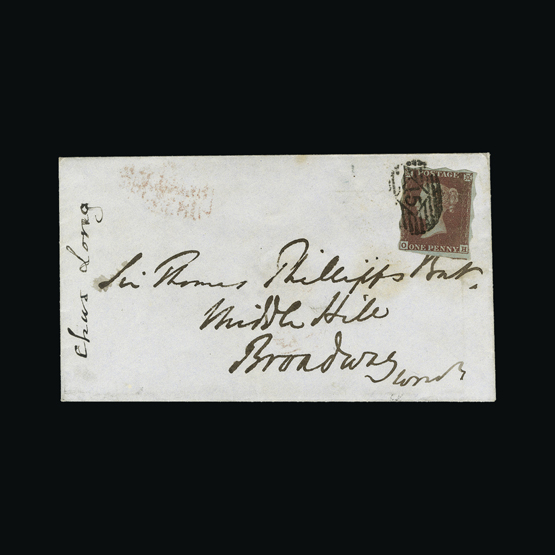 Chas Long
Sir Thomas Phillipps Bart.
Middle Hill
Broadway
POSTAGE
ONE PENNY